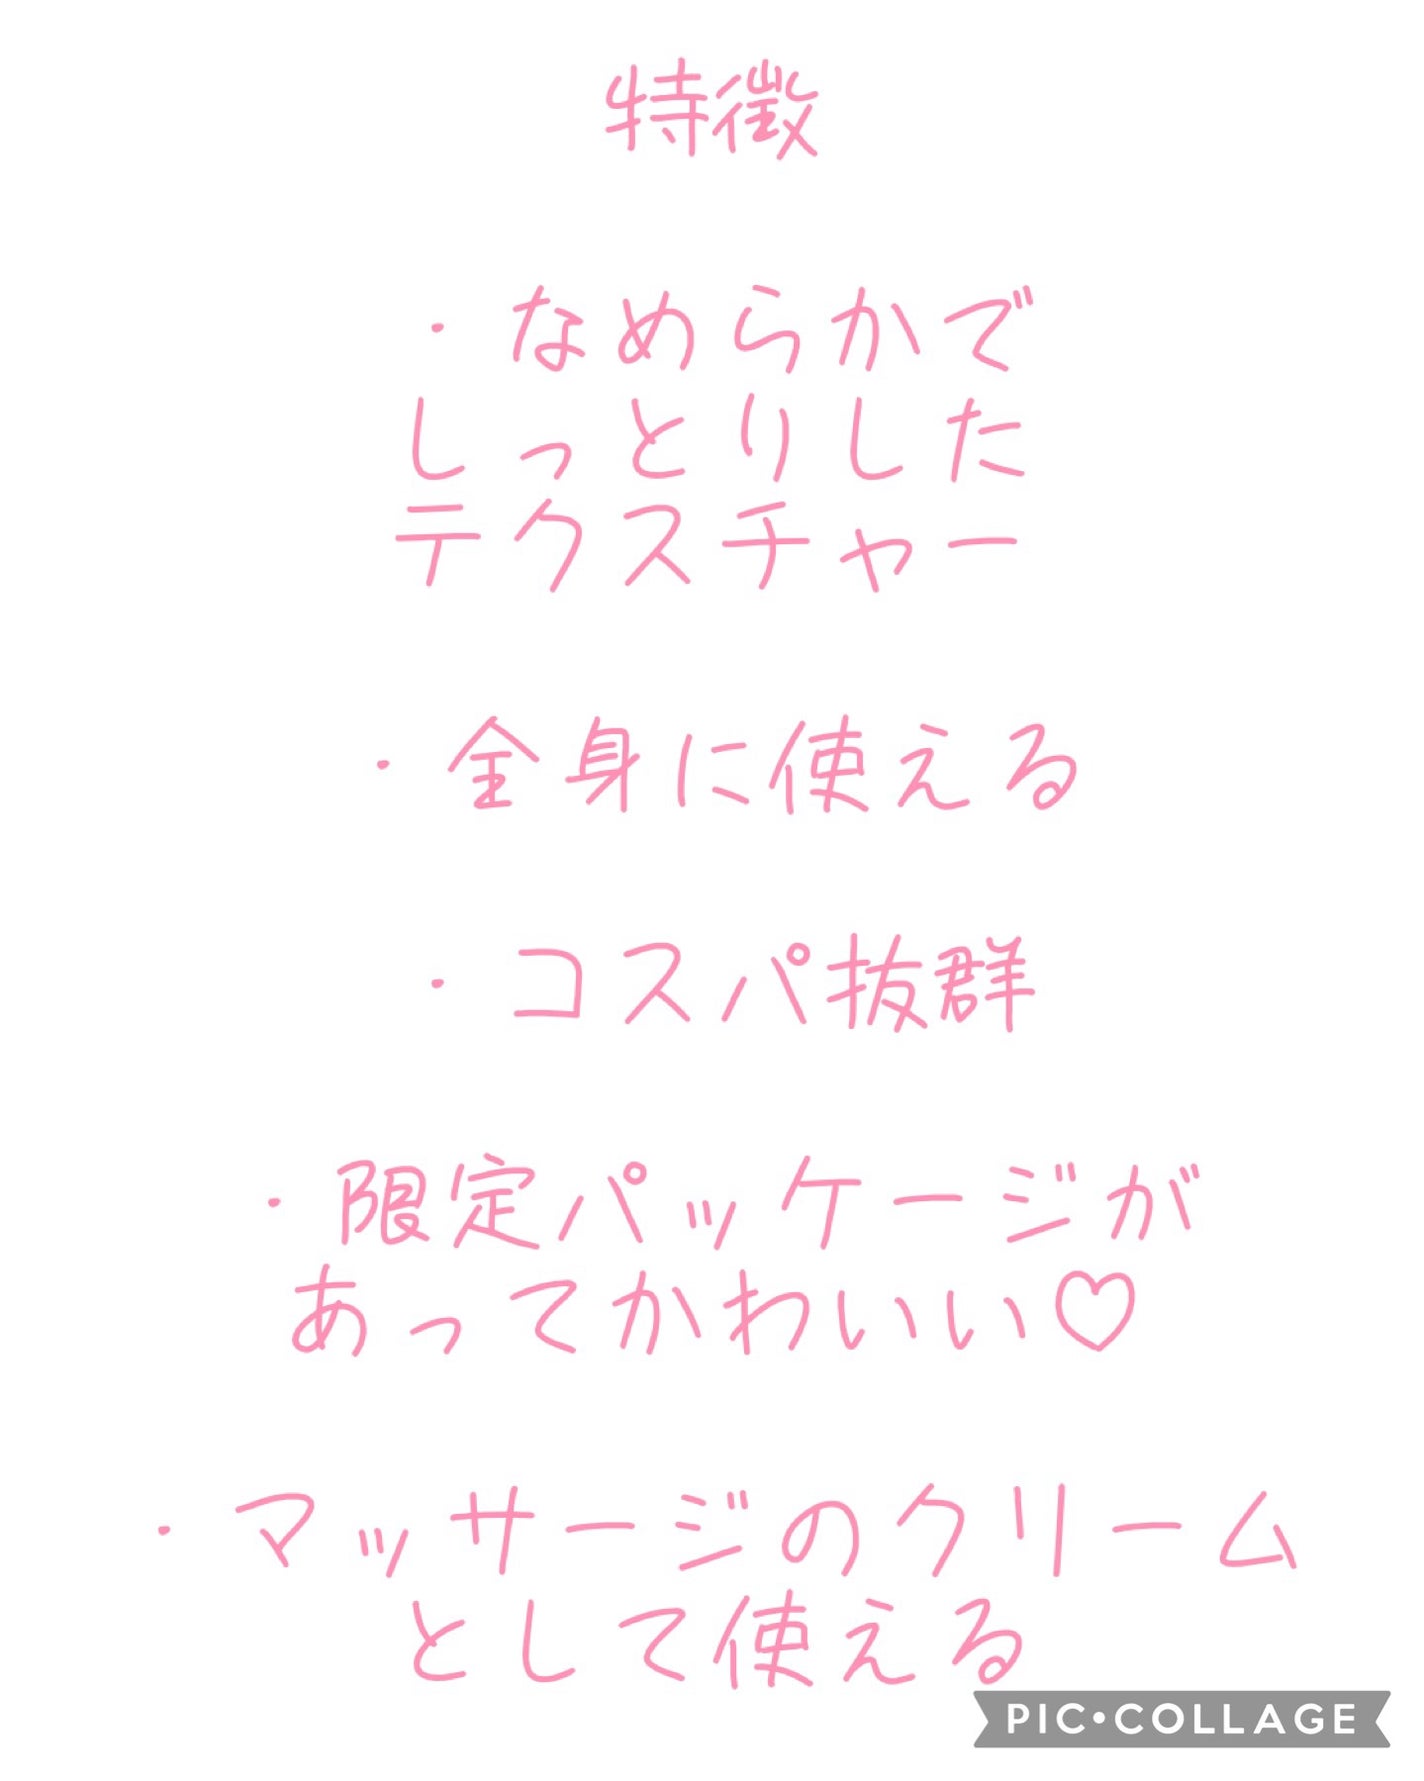 特徴
・なめらかで
しっとりした
テクスチャー
・全身に使える
・コスパ抜群
・限定パッケージが
あってかわいい♡
・マッサージのクリーム
として使える
PIC•COLLAGE